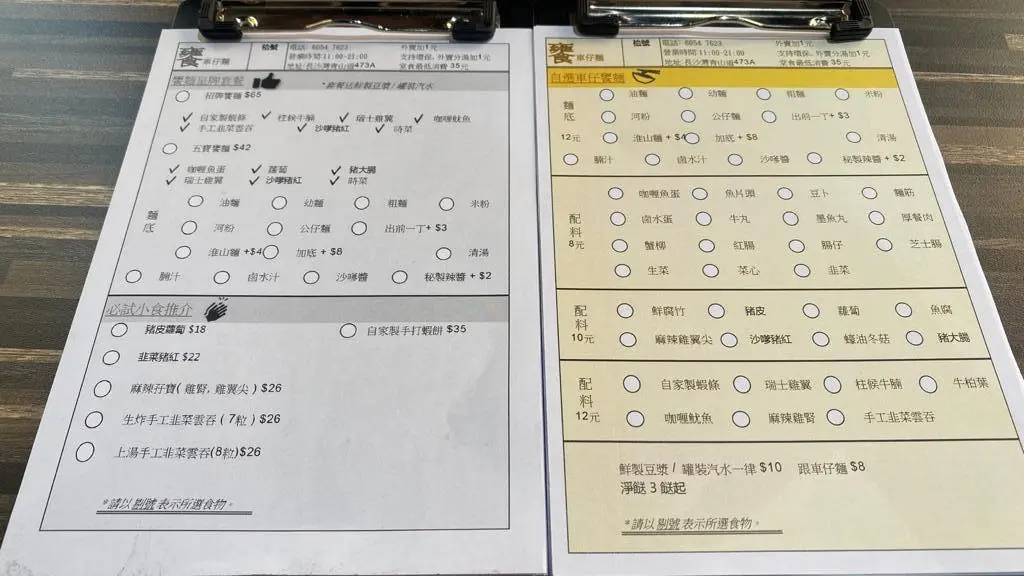 饔 車仔麵
枱號
電話: 6054 7623 外賣加1元
營業時間:11:00-21:00 支持環保, 外賣分湯加1元
地址:長沙灣青山道473A 堂食最低消費 35元
饔麵皇牌套餐
*套餐送鮮製豆漿/罐裝汽水
招牌饔麵 $65
✓ 自家製蝦條 ✓ 柱侯牛腩 ✓ 瑞士雞翼 ✓ 咖喱魷魚
✓ 手工韭菜雲吞 ✓ 沙嗲豬紅 ✓ 時菜
五寶饔麵 $42
✓ 咖喱魚蛋 ✓ 蘿蔔 ✓ 豬大腸
✓ 瑞士雞翼 ✓ 沙嗲豬紅 ✓ 時菜
麵底
油麵 幼麵 粗麵 米粉
河粉 公仔麵 出前一丁+ $3
淮山麵 +$4 加底 + $8 清湯
腩汁 鹵水汁 沙嗲醬 秘製辣醬 + $2
必試小食推介
豬皮蘿蔔 $18 自家製手打蝦餅 $35
韭菜豬紅 $22
麻辣孖寶( 雞腎, 雞翼尖 ) $26
生炸手工韭菜雲吞 ( 7粒 ) $26
上湯手工韭菜雲吞(8粒)$26
*請以剔號表示所選食物。
饔 車仔麵
枱號
電話: 6054 7623 外賣加1元
營業時間:11:00-21:00 支持環保, 外賣分湯加1元
地址:長沙灣青山道473A 堂食最低消費 35元
自選車仔饔麵
麵底
12元
油麵 幼麵 粗麵 米粉
河粉 公仔麵 出前一丁+ $3
淮山麵 + $4 加底 + $8 清湯
腩汁 鹵水汁 沙嗲醬 秘製辣醬 + $2
配料
8元
咖喱魚蛋 魚片頭 豆卜 麵筋
鹵水蛋 牛丸 墨魚丸 厚餐肉
蟹柳 紅腸 腸仔 芝士腸
生菜 菜心 韭菜
配料
10元
鮮腐竹 豬皮 蘿蔔 魚腐
麻辣雞翼尖 沙嗲豬紅 蠔油冬菇 豬大腸
配料
12元
自家製蝦條 瑞士雞翼 柱侯牛腩 牛柏葉
咖喱魷魚 麻辣雞腎 手工韭菜雲吞
鮮製豆漿 / 罐裝汽水一律 $10 跟車仔麵 $8
淨餸 3 餸起
*請以剔號表示所選食物。